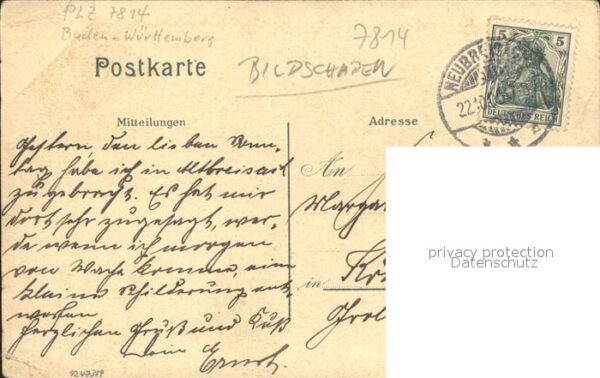 PLZ 7814
Baden-Württemberg
7814
Postkarte
BILDSCHADEN
NEUBREISACH
22.
5 5
DEUTSCHES REICH
Mitteilungen
Adresse
Gestern den lieben Sonn-
tag habe ich in Altbreisach
zugebracht. Es hat mir
dort sehr zugesagt, wer-
de wenn ich morgen
von Wache komme, eine
kleine Schilderung ent-
werfen
Herzlichen Gruß und Kuß
Dein Ernst.
An
Marga
in
privacy protection
Datenschutz